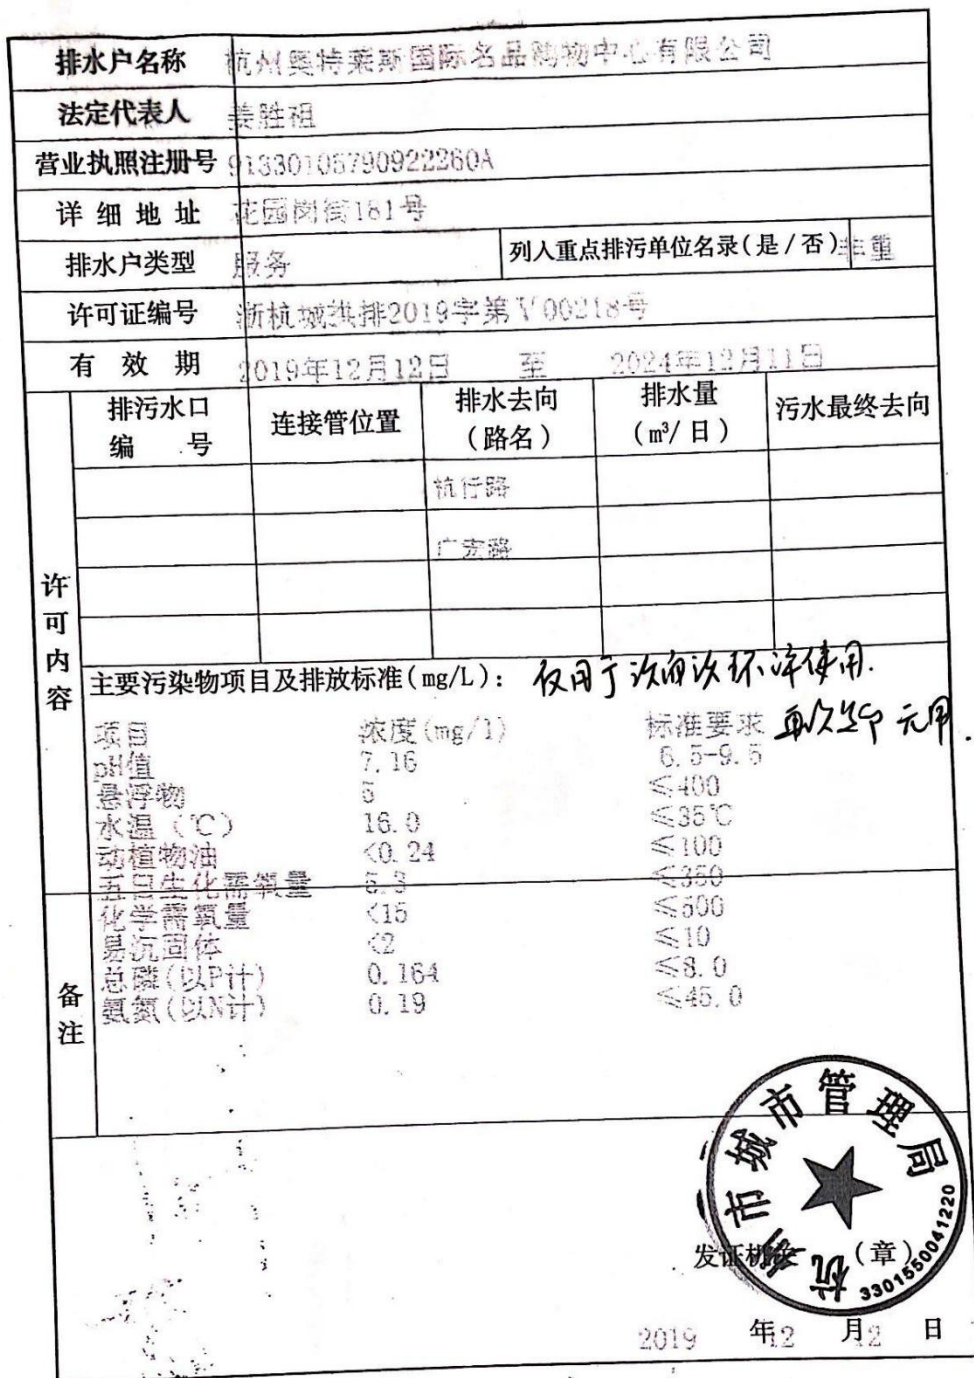 排水户名称 杭州奥特莱斯国际名品购物中心有限公司
法定代表人 姜胜祖
营业执照注册号 91330105790922260A
详细地址 花园岗街181号
排水户类型 服务 列入重点排污单位名录(是/否) 非重
许可证编号 浙杭城拱排2019字第V00218号
有效期 2019年12月12日 至 2024年12月11日
许可内容
排污水口编号 连接管位置 排水去向(路名) 排水量(m³/日) 污水最终去向
杭行路
广宏路
主要污染物项目及排放标准(mg/L): 仅用于 使用.
再次复印无用.
项目 浓度(mg/l) 标准要求
pH值 7.16 6.5-9.5
悬浮物 5 ≤400
水温(℃) 16.0 ≤35℃
动植物油 <0.24 ≤100
五日生化需氧量 5.3 ≤350
化学需氧量 <15 ≤500
易沉固体 <2 ≤10
总磷(以P计) 0.164 ≤8.0
氨氮(以N计) 0.19 ≤45.0
备注
杭州市城市管理局
3301550041220
发证机关 (章)
2019 年12 月12 日